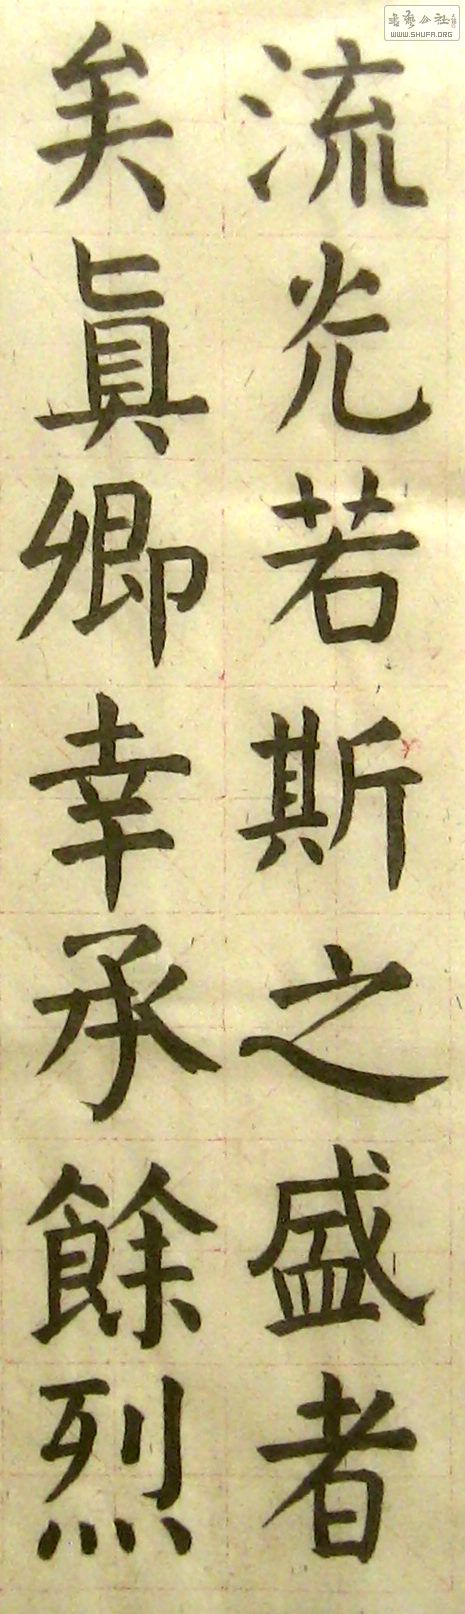 流光若斯之盛者
矣眞卿幸承餘烈
书艺公社
WWW.SHUFA.ORG